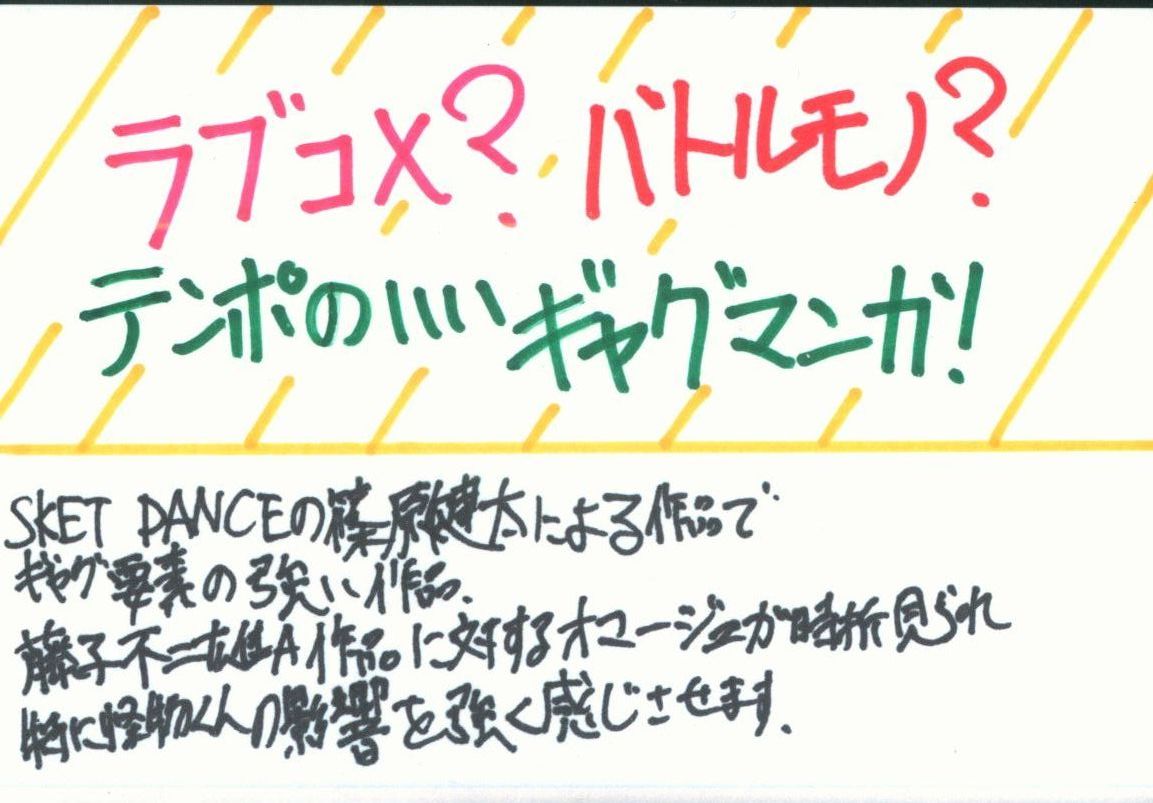 ラブコメ？ バトルモノ？
テンポのいいギャグマンガ！
SKET DANCEの篠原健太による作品で
ギャグ要素の強い作品。
藤子不二雄A作品に対するオマージュが時折見られ
特に怪物くんの影響を強く感じさせます。